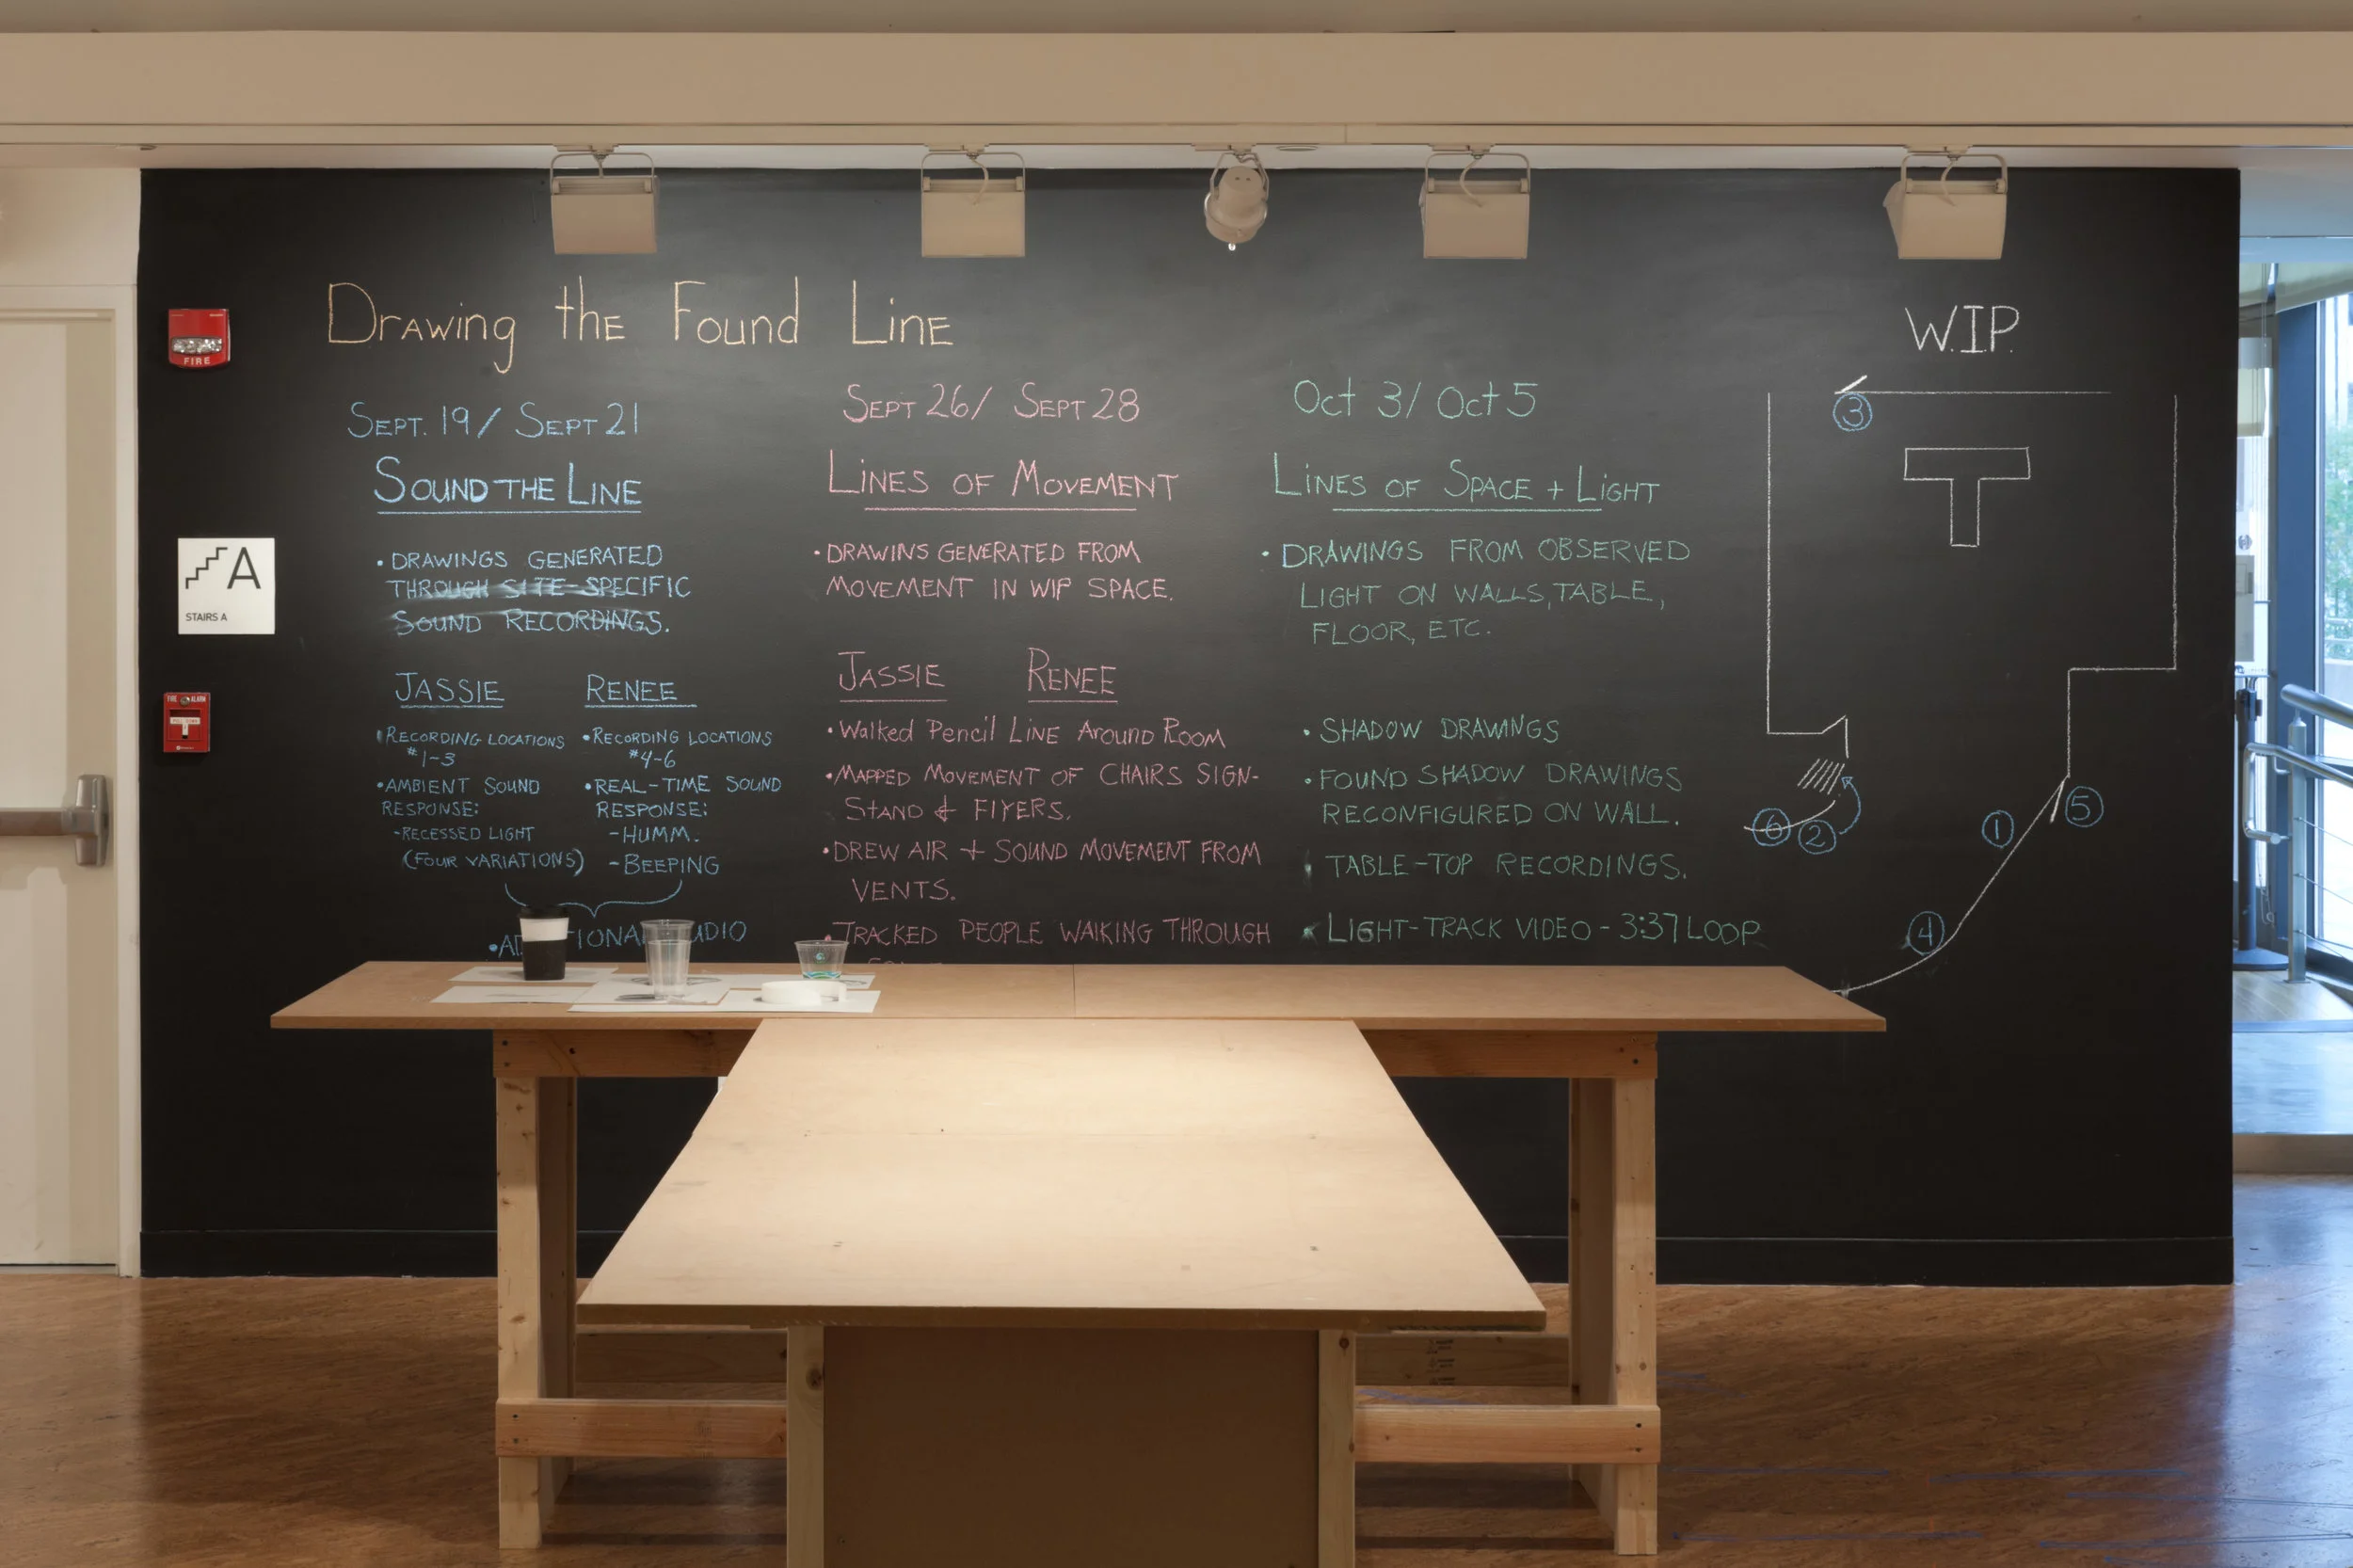 Drawing the Found Line
Sept. 19/ Sept 21
Sound the Line
• Drawings generated
through site-specific
sound recordings.
Jassie Renee
• Recording locations
#1-3
• Ambient sound
response:
- Recessed light
(four variations)
• Recording locations
#4-6
• Real-time sound
response:
- Humm.
- Beeping
Sept 26/ Sept 28
Lines of Movement
• Drawins generated from
movement in WIP space.
Jassie Renee
• Walked Pencil Line Around Room
• Mapped movement of chairs sign-
stand & flyers.
• Drew air + sound movement from
vents.
• Tracked people walking through
Oct 3/ Oct 5
Lines of Space + Light
• Drawings from observed
light on walls, table,
floor, etc.
• Shadow drawings
• Found shadow drawings
reconfigured on wall.
Table-top recordings.
Light-track video - 3:37 loop
W.I.P.
3
1
5
6
2
4
FIRE
A
STAIRS A
FIRE ALARM
PULL DOWN